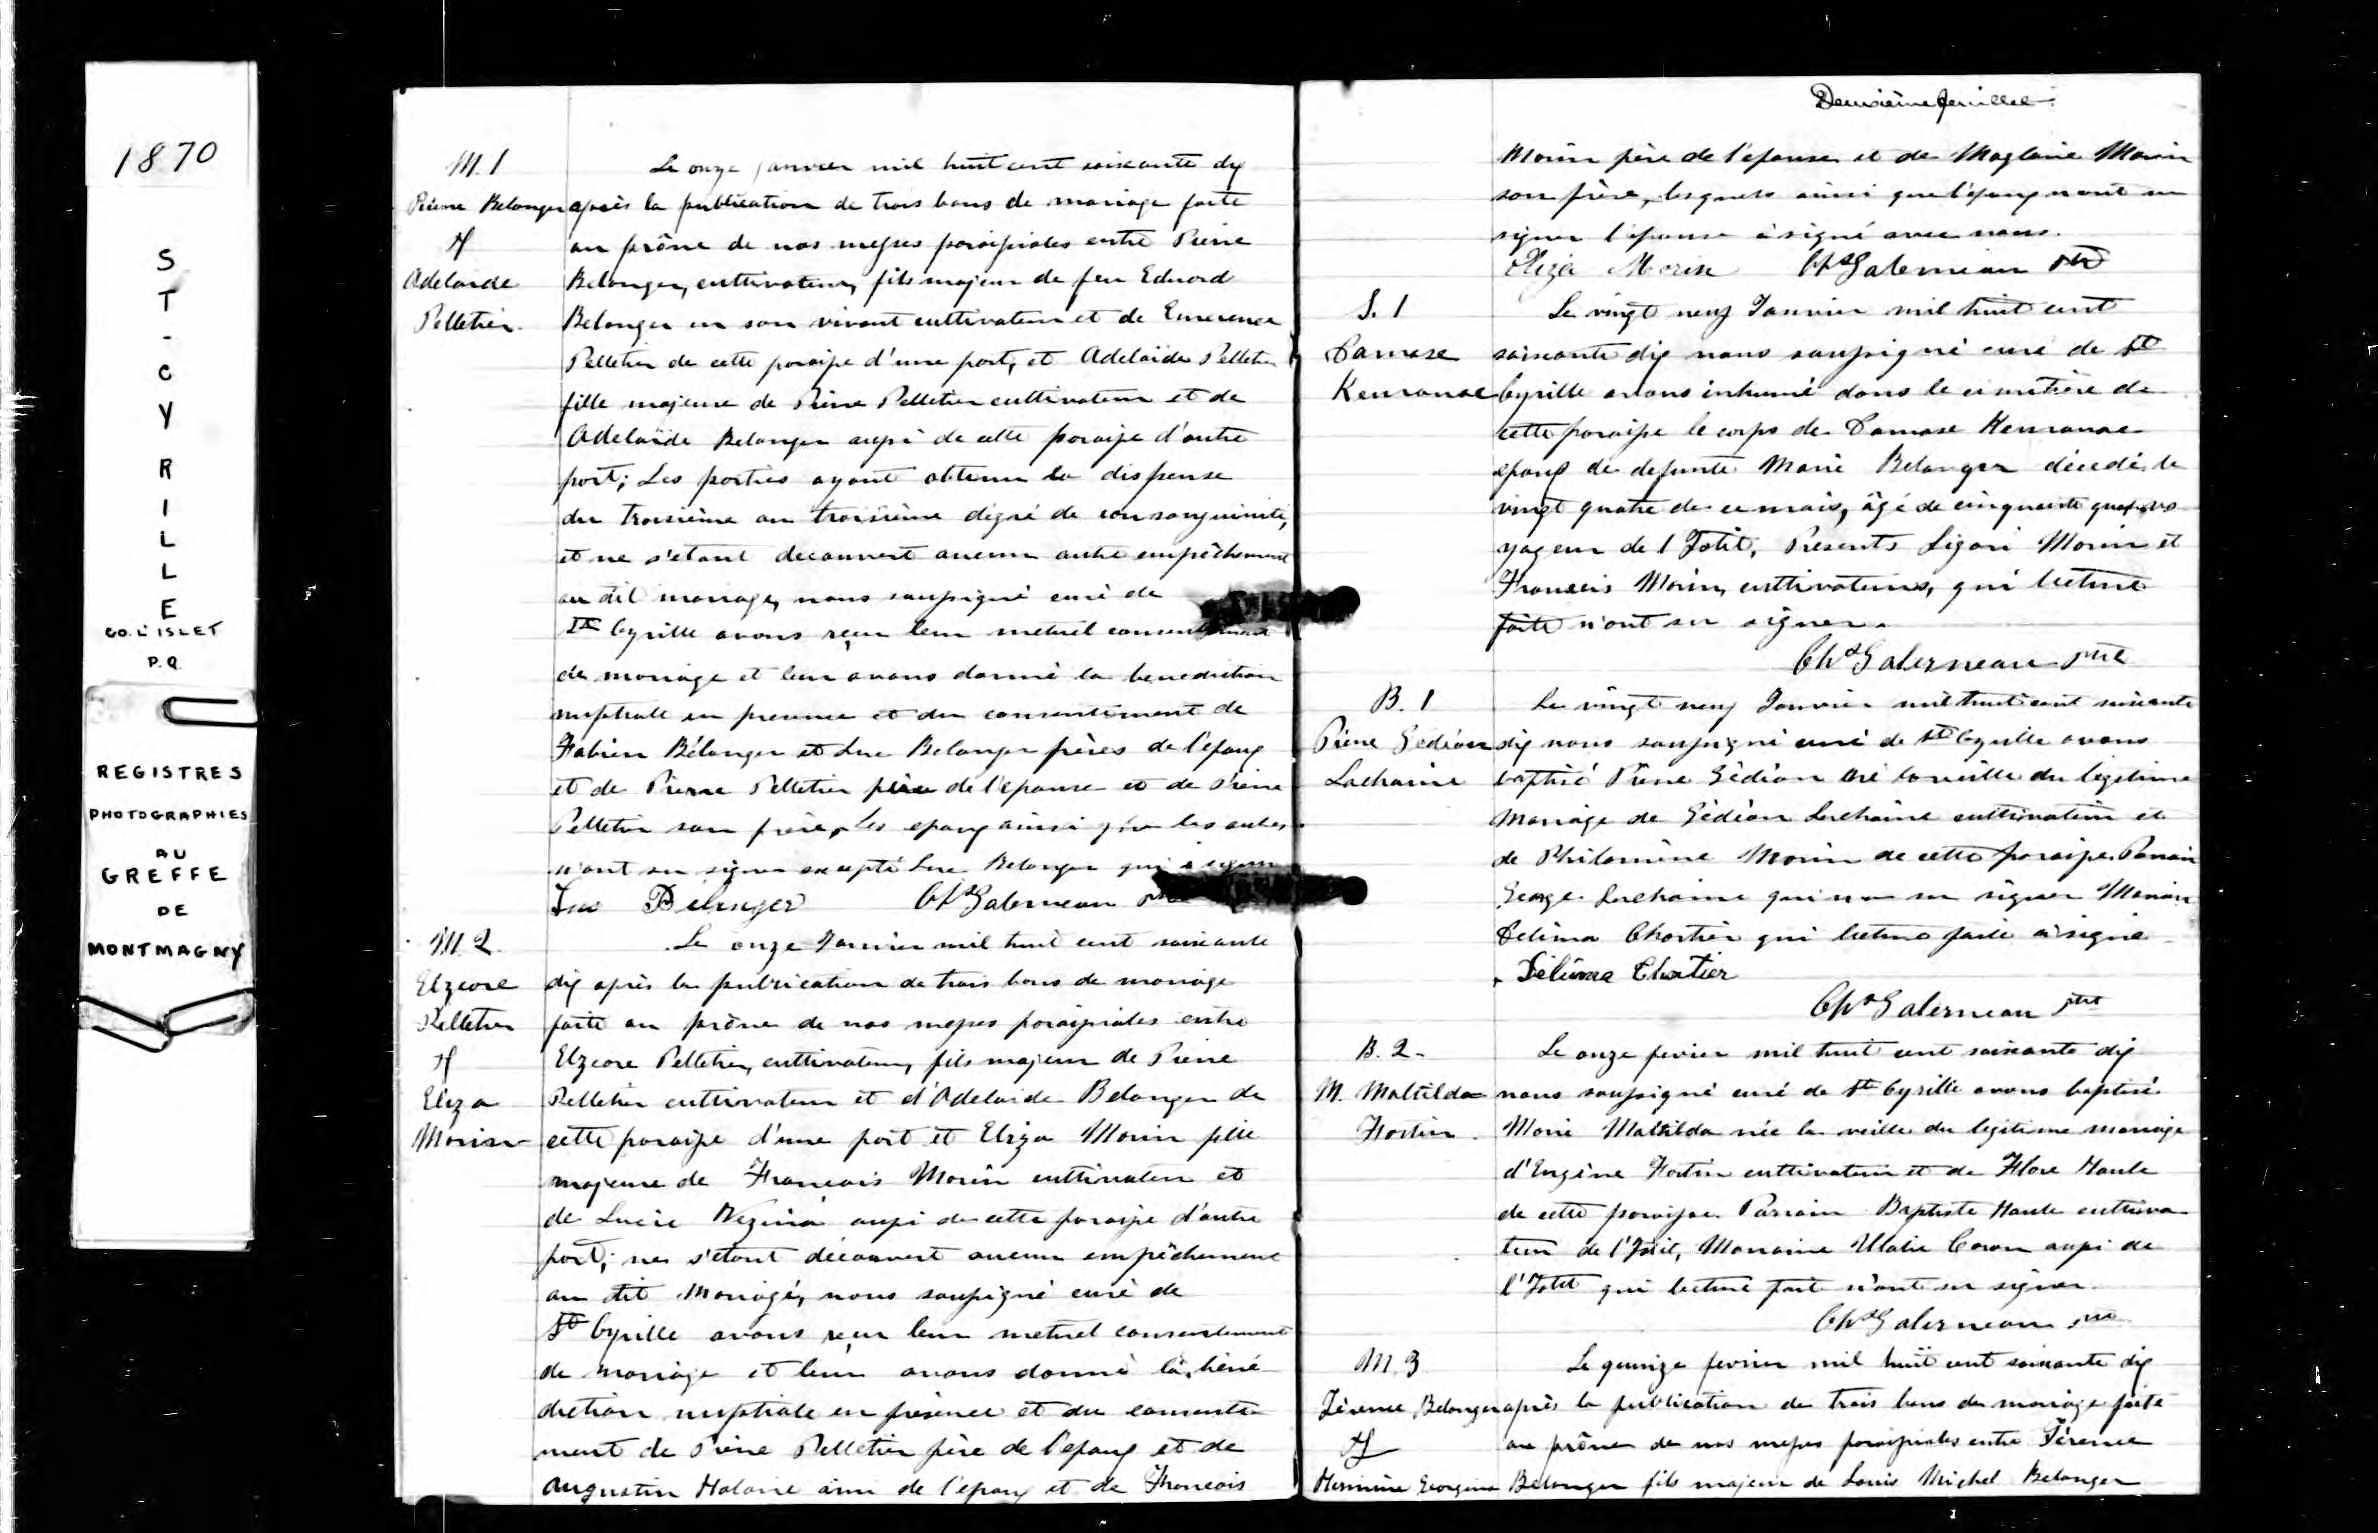 1870
ST-CYRILLE
CO. L'ISLET
P.Q.
REGISTRES
PHOTOGRAPHIES
AU
GREFFE
DE
MONTMAGNY
M. 1
Pierre Belanger
&
Adelaide
Pelletier.
Le onze janvier mil huit cent soixante dix
après la publication de trois bans de mariage faite
au prône de nos messes paroissiales entre Pierre
Belanger, cultivateur, fils majeur de feu Edouard
Belanger en son vivant cultivateur et de Emerence
Pelletier de cette paroisse d'une part, et Adelaïde Pelletier
fille majeure de Pierre Pelletier cultivateur et de
Adelaïde Belanger aussi de cette paroisse d'autre
part; Les parties ayant obtenu la dispense
du troisième au troisième dégré de consanguinité,
et ne s'etant decouvert aucun autre empêchement
au dit mariage, nous soussigné curé de
St Cyrille avons reçu leur mutuel consentement
de mariage et leur avons donné la benediction
nuptiale en presence et du consentement de
Fabien Bélanger et Luc Belanger frères de l'epoux
et de Pierre Pelletier père de l'epouse et de Pierre
Pelletier son frère, les epoux ainsi que les autres
n'ont su signer excepté Luc Belanger qui a signé
Luc Belenger Chs Galerneau ptre
M. 2.
Elzeore
Pelletier
&
Eliza
Morin
Le onze Janvier mil huit cent soixante
dix après la publication de trois bans de mariage
faite au prône de nos messes paroissiales entre
Elzeore Pelletier, cultivateur, fils majeur de Pierre
Pelletier cultivateur et d'Adelaide Belanger de
cette paroisse d'une part et Eliza Morin fille
majeure de Francois Morin cultivateur et
de Lucie Vezina aussi de cette paroisse d'autre
part; ne s'etant découvert aucun empêchement
au dit Mariage, nous soussigné curé de
St Cyrille avons reçu leur mutuel consentement
de mariage et leur avons donné la béné
diction nuptiale en présence et du consente
ment de Pierre Pelletier père de l'epoux et de
Augustin ami de l'epoux et de Francois
Deuxième feuillet.
Morin père de l'épouse et de Magloire Morin
son frère, lesquels ainsi que l'époux n'ont su
signer l'épouse a signé avec nous.
Eliza Morin Chs Galerneau ptre
S. 1
Damase
Kenranac
Le vingt neuf Janvier mil huit cent
soixante dix nous soussigné curé de St
Cyrille avons inhumé dans le cimetière de
cette paroisse le corps de Damase Kenranac
epoux de defunte Marie Belanger décédé le
vingt quatre de ce mois, âgé de cinquante quatre vo
yageur de l'Islet, Presents Ligori Morin et
Francois Morin, cultivateurs, qui lecture
faite n'ont su signer.
Chs Galerneau ptre
B. 1
Pierre Gedéon
Lachaine
Le vingt neuf Janvier mil huit cent soixante
dix nous soussigné curé de St Cyrille avons
baptisé Pierre Gédéon né la veille du legitime
Mariage de Gédéon Lachaine cultivateur et
de Philomène Morin de cette paroisse. Parrain
George Lachaine qui n'a su signer Maraine
Délima Chartier qui lecture faite a signé
Délima Chartier
Chs Galerneau ptre
B. 2.
M. Maltilda
Fortin.
Le onze fevrier mil huit cent soixante dix
nous soussigné curé de St Cyrille avons baptisé
Marie Maltilda née la veille du legitime mariage
d'Eugène Fortin cultivateur et de Flore
de cette paroisse. Parrain Baptiste cultiva
teur de l'Islet, Marraine Caron aussi de
l'Islet qui lecture fait n'ont su signer.
Chs Galerneau ptre
M. 3
Térence Belanger
&
Hermine Georgina
Le quinze fevrier mil huit cent soixante dix
après la publication de trois bans de mariage faite
au prône de nos messes paroissiales entre Térence
Belanger fils majeur de Louis Michel Belanger